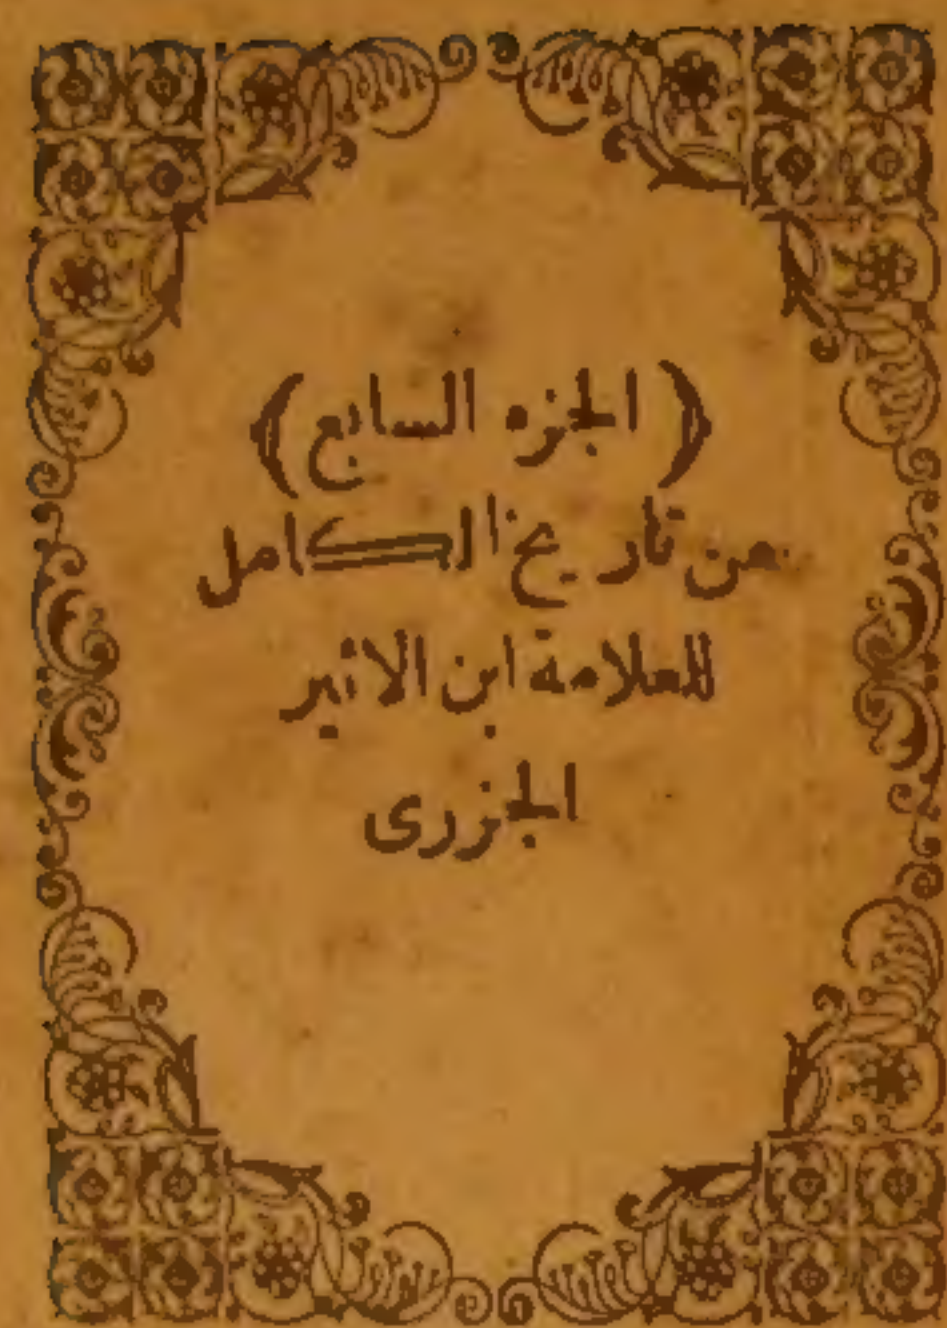 ﴿ الجزء السابع ﴾
من تاريخ الكامل
للعلامة ابن الاثير
الجزرى